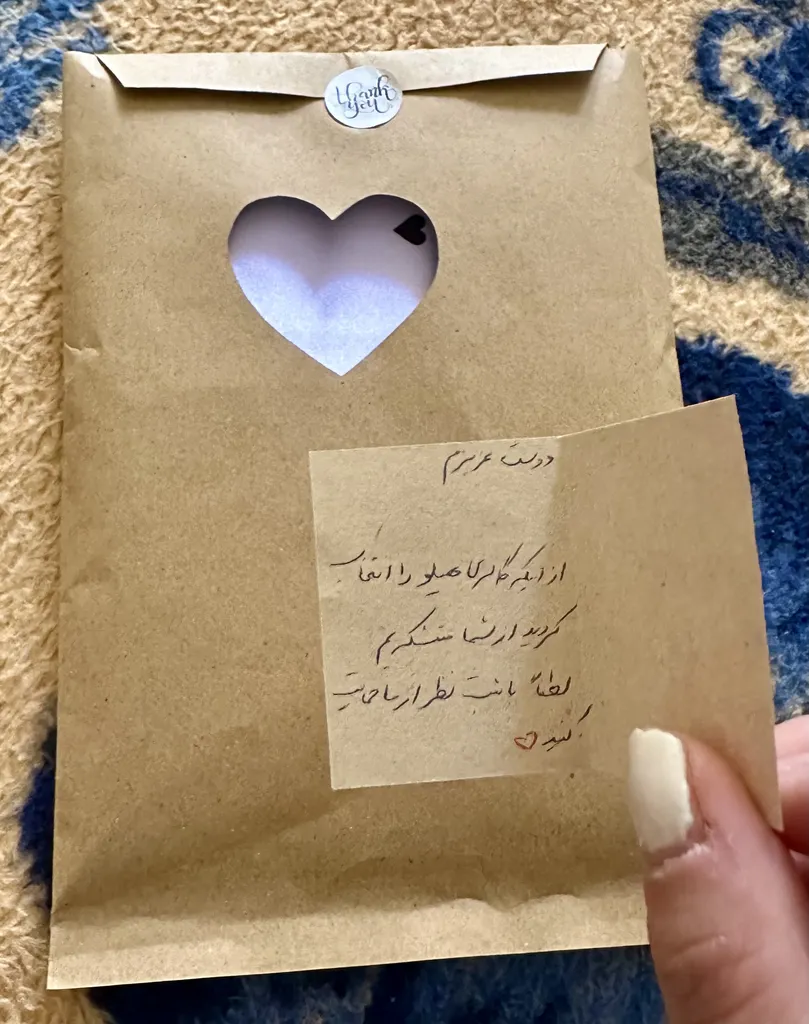 Thank
you
دوست عزیزم
از اینکه گالری هیلو را انتخاب
کردید از شما متشکریم
لطفاً با ثبت نظر از ما حمایت
کنید